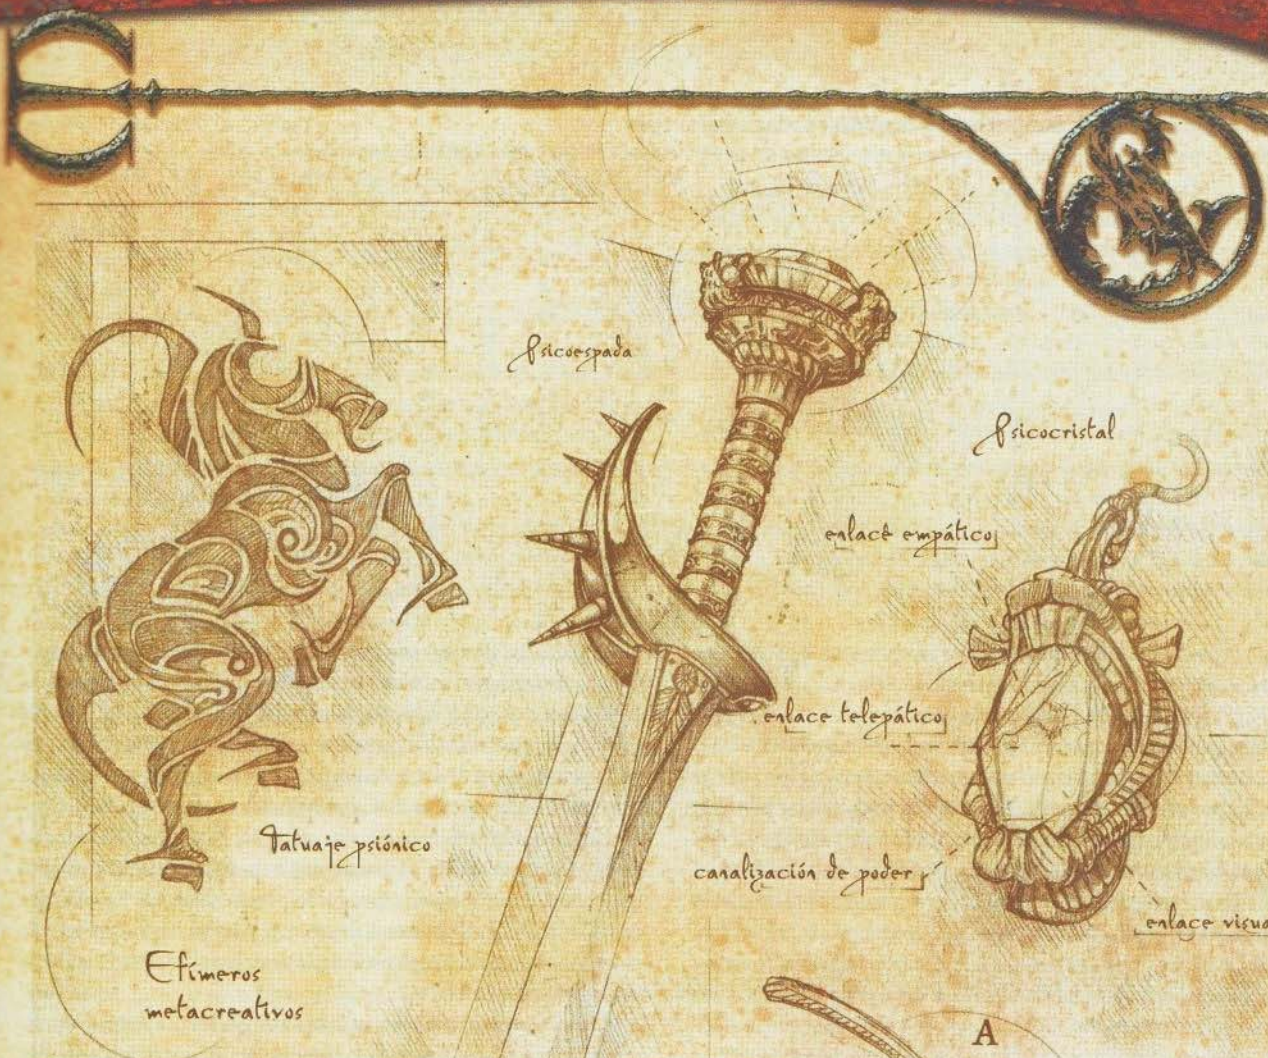 Psicoespada
Psicocristal
enlace empático
enlace telepático
Tatuaje psiónico
canalización de poder
enlace
Efímeros
metacreativos
A